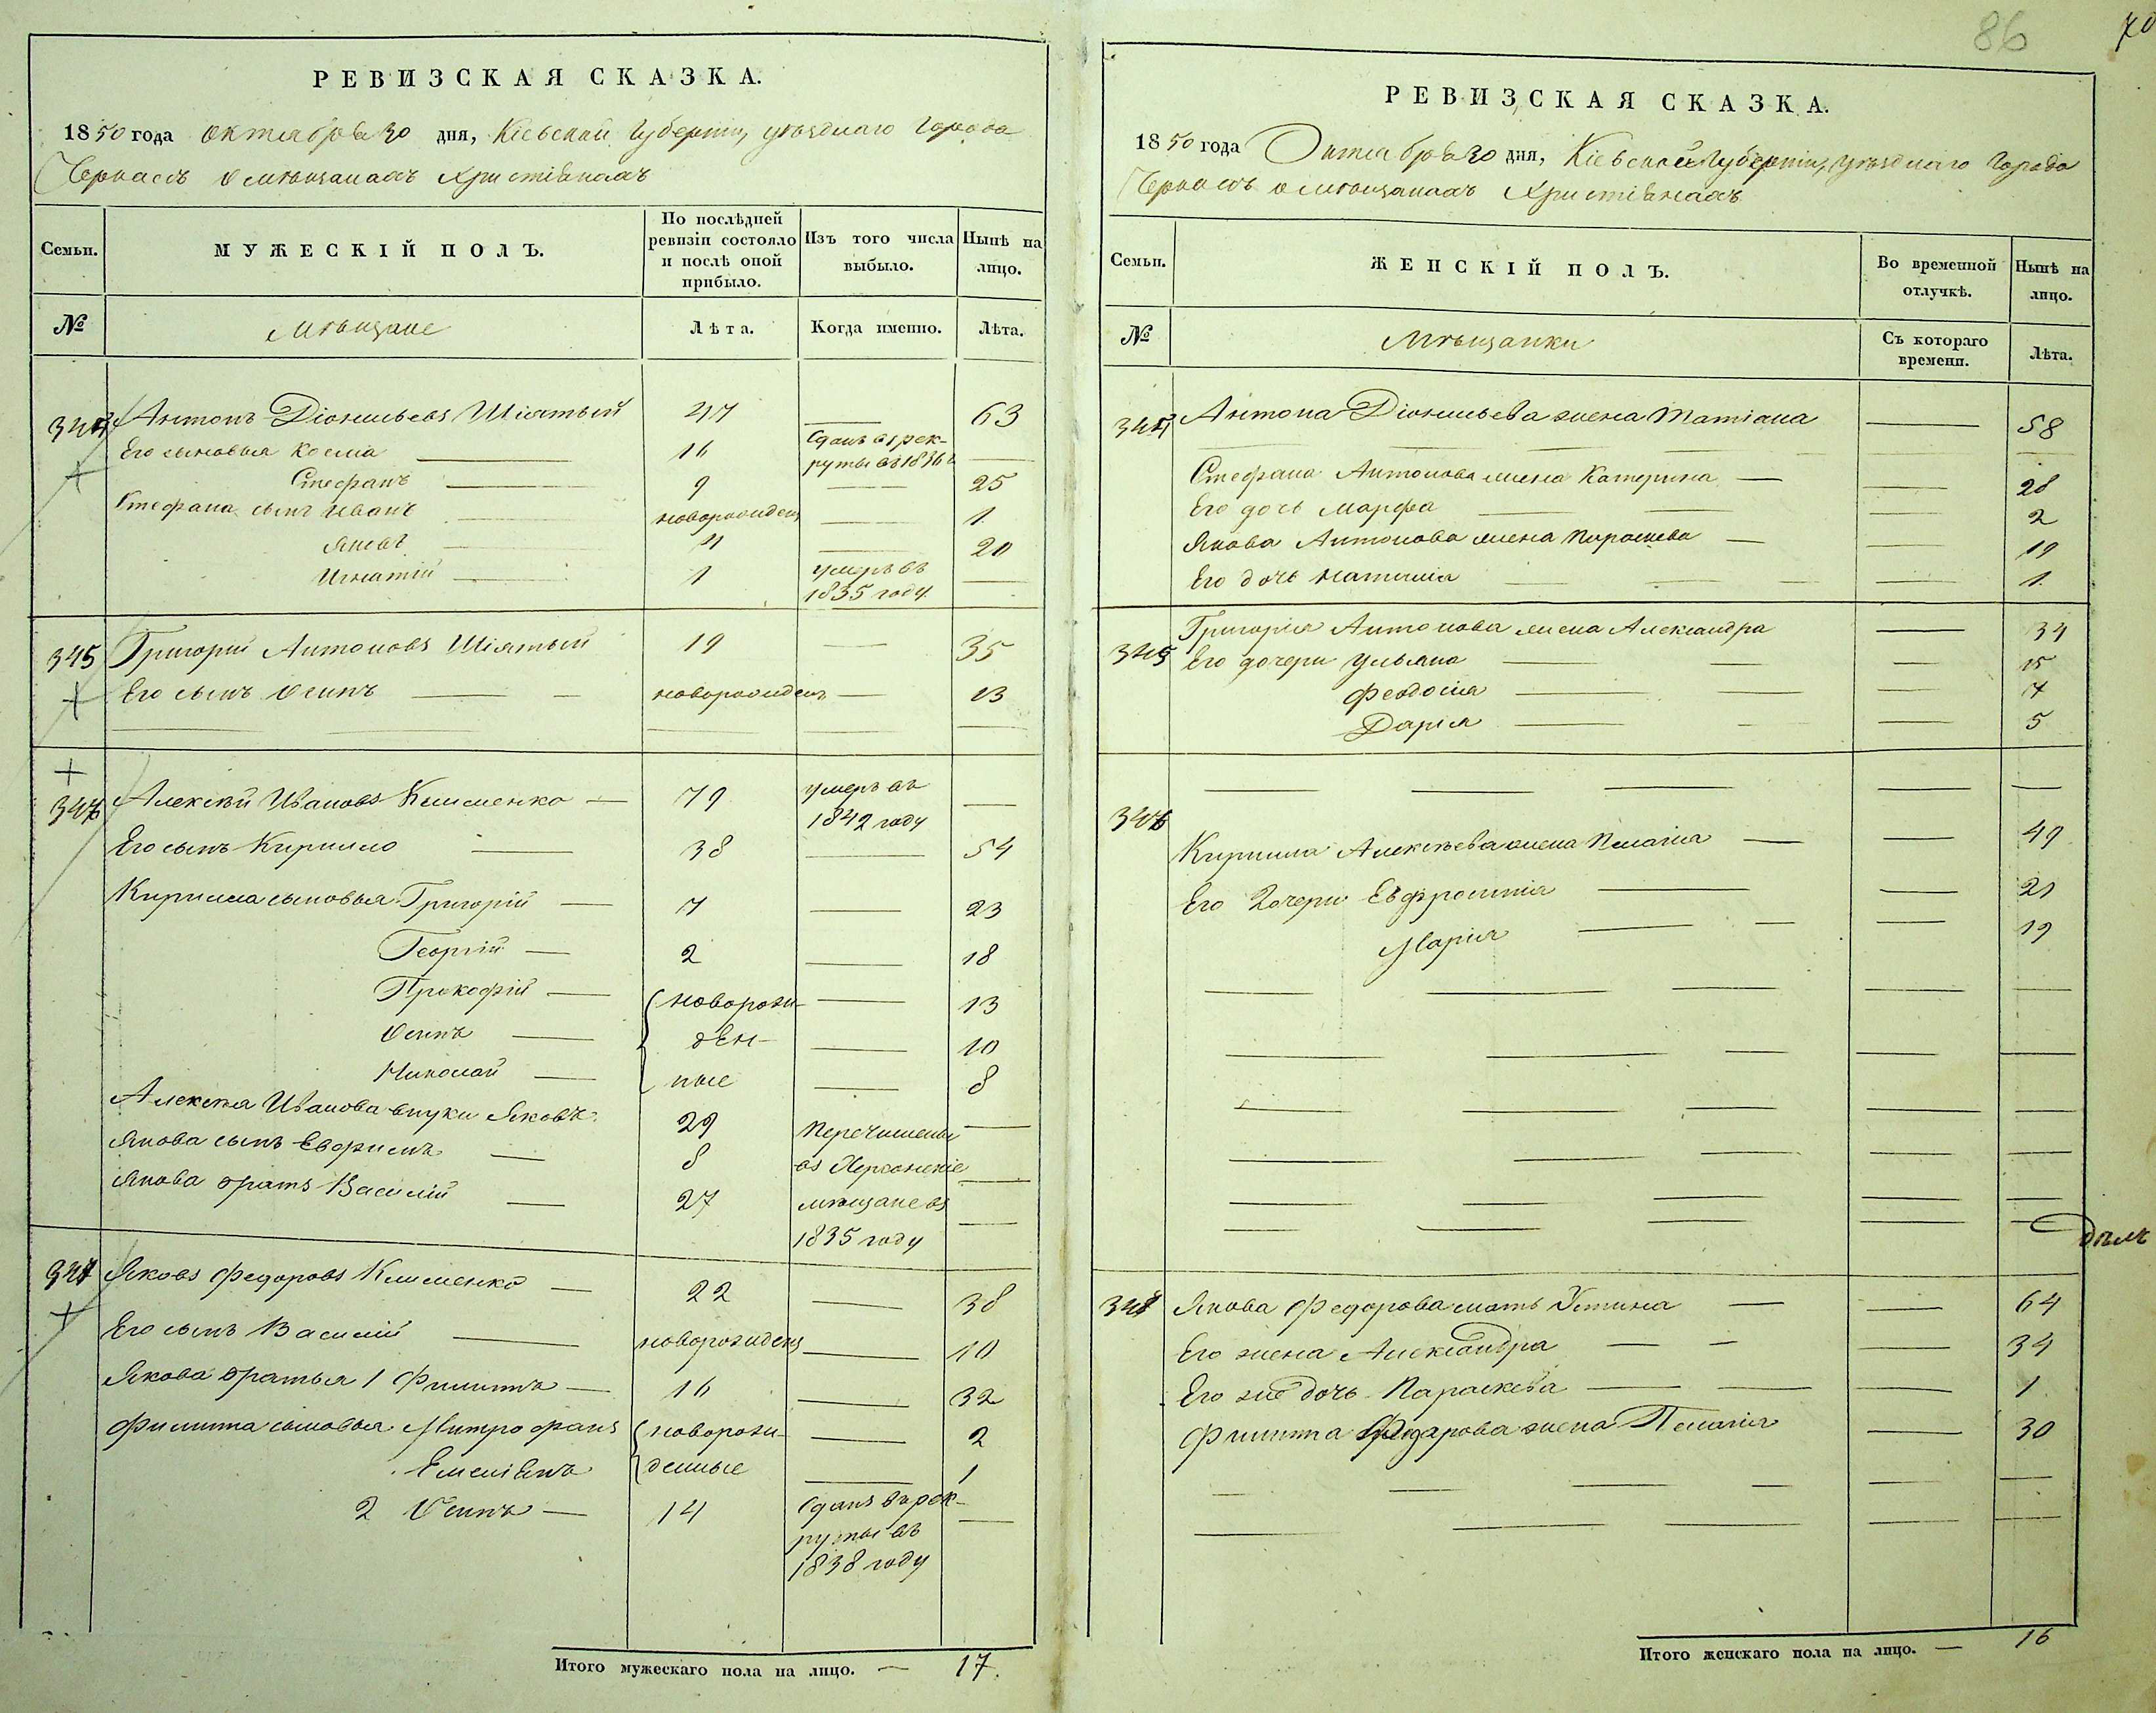 86
70
РЕВИЗСКАЯ СКАЗКА.
1850 года октября 30 дня, Кіевской Губерніи, уѣзднаго Города
Черкасъ о мѣщанахъ Христіанахъ
Семьи.
МУЖЕСКІЙ ПОЛЪ.
По послѣдней ревизіи состояло и послѣ оной прибыло.
Изъ того числа выбыло.
Нынѣ на лицо.
№
Мѣщане
Лѣта.
Когда именно.
Лѣта.
Антонъ Діонисьевъ Шіятый 47 — 63
Его сыновья Косма — 16 Сданъ въ рек-
руты въ 1836 г —
Стефанъ — 9 — 25
Стефана сынъ Иванъ — новорожденъ — 1
Яковъ — 4 — 20
Игнатій — 1 умеръ въ
1835 году —
345 Григорій Антоновъ Шіятый 19 — 35
Его сынъ Осипъ — — новорожденъ — 13
346 Алексѣй Ивановъ Клименко — 79 умеръ въ
1842 году —
Его сынъ Кирилло — 38 — 54
Кирилла сыновья Григорій — 7 — 23
Георгій — 2 — 18
Прокофій — новорож- — 13
Осипъ — ден- — 10
Николай — ные — 8
Алексѣя Иванова внуки Яковъ 29 Перечислены —
Якова сынъ Евфимъ — 8 въ Херсонскіе —
Якова братъ Василій — 27 мѣщане въ
1835 году —
347 Яковъ Федоровъ Клименко — 22 — 38
Его сынъ Василій — новорожденъ — 10
Якова братья 1 Филиппъ — 16 — 32
Филиппа сыновья Митрофанъ новорож- — 2
Емеліянъ денные — 1
2 Осипъ — 14 Сданъ въ рек-
руты въ
1838 году —
Итого мужескаго пола на лицо. — 17.
РЕВИЗСКАЯ СКАЗКА.
1850 года Октября 30 дня, Кіевской Губерніи, уѣзднаго Города
Черкасъ о мѣщанахъ Христіанахъ
Семьи.
ЖЕНСКІЙ ПОЛЪ.
Во временной отлучкѣ.
Нынѣ на лицо.
№
Мѣщанки
Съ котораго времени.
Лѣта.
Антона Діонисьева жена Татіана — 58
Стефана Антонова жена Катерина — — 28
Его дочь Марфа — — — 2
Якова Антонова жена Параскева — — 19
Его дочь — — — — 1
Григорія Антонова жена Александра — 34
345 Его дочери Ульяна — — — 15
Феодосія — — — 7
Дарія — — — 5
346
Кирилла Алексѣева жена Пелагія — — 49
Его дочери Евфросинія — — 21
Марія — — — 19
Якова Федорова мать Устина — — 64
Его жена Александра — — — 34
Его же дочь Параскева — — — 1
Филиппа Федорова жена Пелагія — 30
Итого женскаго пола на лицо. — 16